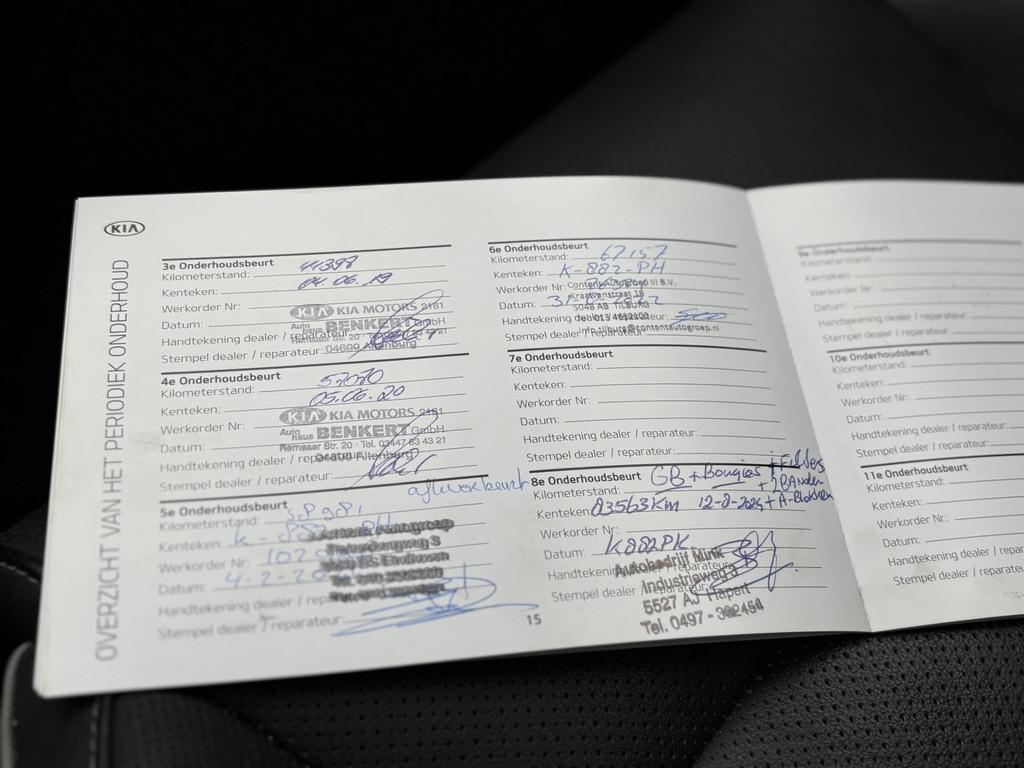 KIA
OVERZICHT VAN HET PERIODIEK ONDERHOUD
3e Onderhoudsbeurt
Kilometerstand: 41398
Kenteken: 04.06.19
Werkorder Nr:
KIA MOTORS 2161
Datum:
Auto haus BENKERT GmbH
Handtekening dealer / reparateur:
Remsaer Str. 20
Stempel dealer / reparateur:
04600 Altenburg
4e Onderhoudsbeurt
Kilometerstand:
Kenteken: 05.06.20
Werkorder Nr:
KIA MOTORS 2161
Datum:
Auto haus BENKERT GmbH
Remsaer Str. 20 - Tel. 03447 83 43 21
Handtekening dealer / reparateur:
Altenburg
Stempel dealer / reparateur:
5e Onderhoudsbeurt
afleverbeurt
Kilometerstand:
Kenteken: K-882-PH
Werkorder Nr:
Datum: 4-2-20
Handtekening dealer / reparateur:
Stempel dealer / reparateur:
6e Onderhoudsbeurt
Kilometerstand: 67157
Kenteken: K-882-PH
Werkorder Nr:
Contentautogroep III B.V.
Kraaivenstraat 16
Datum:
5048 AB TILBURG
Handtekening dealer / reparateur:
Stempel dealer / reparateur:
info.tilburg@contentautogroep.nl
7e Onderhoudsbeurt
Kilometerstand:
Kenteken:
Werkorder Nr:
Datum:
Handtekening dealer / reparateur:
Stempel dealer / reparateur:
8e Onderhoudsbeurt GB + Bougies + Filters
Kilometerstand: + 2 Banden
Kenteken: 83563 Km 12-8-2025 + A-Blokken
Werkorder Nr:
Datum: K882PK
Handtekening dealer / reparateur:
Stempel dealer / reparateur:
Autobedrijf Mink
Industrieweg 3
5527 AJ Hapert
Tel. 0497 -
15
9e Onderhoudsbeurt
Kilometerstand:
Kenteken:
Werkorder Nr:
Datum:
Handtekening dealer / reparateur:
Stempel dealer / reparateur:
10e Onderhoudsbeurt
Kilometerstand:
Kenteken:
Werkorder Nr:
Datum:
Handtekening dealer / reparateur:
Stempel dealer / reparateur:
11e Onderhoudsbeurt
Kilometerstand:
Kenteken:
Werkorder Nr:
Datum:
Handtekening dealer / reparateur:
Stempel dealer / reparateur: